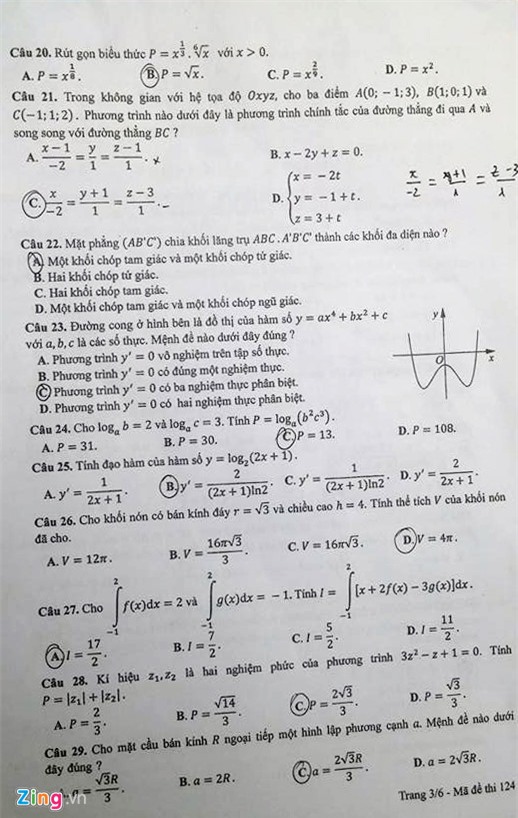 Câu 20. Rút gọn biểu thức P = x^{1/3}.\sqrt[6]{x} với x > 0.
A. P = x^{1/8}. B. P = √x. C. P = x^{2/9}. D. P = x².
Câu 21. Trong không gian với hệ tọa độ Oxyz, cho ba điểm A(0; − 1; 3), B(1; 0; 1) và
C(−1; 1; 2). Phương trình nào dưới đây là phương trình chính tắc của đường thẳng đi qua A và
song song với đường thẳng BC ?
A. (x − 1)/−2 = y/1 = (z − 1)/1. B. x − 2y + z = 0.
C. x/−2 = (y + 1)/1 = (z − 3)/1. D. { x = − 2t
y = −1 + t.
z = 3 + t
x/−2 = (y+1)/1 = (z−3)/1
Câu 22. Mặt phẳng (AB'C') chia khối lăng trụ ABC.A'B'C' thành các khối đa diện nào ?
A. Một khối chóp tam giác và một khối chóp tứ giác.
B. Hai khối chóp tứ giác.
C. Hai khối chóp tam giác.
D. Một khối chóp tam giác và một khối chóp ngũ giác.
Câu 23. Đường cong ở hình bên là đồ thị của hàm số y = ax⁴ + bx² + c
với a, b, c là các số thực. Mệnh đề nào dưới đây đúng ?
A. Phương trình y' = 0 vô nghiệm trên tập số thực.
B. Phương trình y' = 0 có đúng một nghiệm thực.
C. Phương trình y' = 0 có ba nghiệm thực phân biệt.
D. Phương trình y' = 0 có hai nghiệm thực phân biệt.
y
O
x
Câu 24. Cho logₐ b = 2 và logₐ c = 3. Tính P = logₐ(b²c³).
A. P = 31. B. P = 30. C. P = 13. D. P = 108.
Câu 25. Tính đạo hàm của hàm số y = log₂(2x + 1).
A. y' = 1/(2x + 1). B. y' = 2/((2x + 1)ln2). C. y' = 1/((2x + 1)ln2). D. y' = 2/(2x + 1).
Câu 26. Cho khối nón có bán kính đáy r = √3 và chiều cao h = 4. Tính thể tích V của khối nón
đã cho.
A. V = 12π. B. V = 16π√3/3. C. V = 16π√3. D. V = 4π.
Câu 27. Cho ∫_{−1}^{2} f(x)dx = 2 và ∫_{−1}^{2} g(x)dx = − 1. Tính I = ∫_{−1}^{2} [x + 2f(x) − 3g(x)]dx.
A. I = 17/2. B. I = 7/2. C. I = 5/2. D. I = 11/2.
Câu 28. Kí hiệu z₁, z₂ là hai nghiệm phức của phương trình 3z² − z + 1 = 0. Tính
P = |z₁| + |z₂|.
A. P = 2/3. B. P = √14/3. C. P = 2√3/3. D. P = √3/3.
Câu 29. Cho mặt cầu bán kính R ngoại tiếp một hình lập phương cạnh a. Mệnh đề nào dưới
đây đúng ?
a = √3R/3. B. a = 2R. C. a = 2√3R/3. D. a = 2√3R.
Zing.vn
Trang 3/6 - Mã đề thi 124